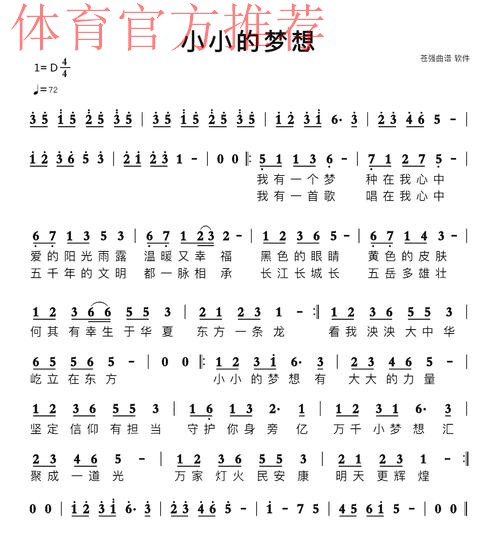 体育官方推荐
小小的梦想
苍强曲谱 软件
1= D 4/4
♩=72
3 5 i 5 2 5 3 5 | 3 5 i 5 2 5 3 5 | i 2 3 i 6· 3 | 2 3 4 6 5 - |
i 2 3 6 5 3 | 2 i 2 3 1 - | 0 0 ‖: 5 1 1 3 6 - | 7 1 2 7 5 - |
我有一个梦 种在我心中
我有一首歌 唱在我心中
6 7 1 3 5 3 | 6 7 1 2 3 2 - | 1 2 3 6 5 - | 6 7 5 6 3 - |
爱的阳光雨露 温暖又幸福 黑色的眼睛 黄色的皮肤
五千年的文明 都一脉相承 长江长城长 五岳多雄壮
1 2 3 6 6 5 5 3 | 2 1 2 3 1 - :‖ 1 2 3 6 5 5 3 |
何其有幸生于华夏 东方一条龙 看我泱泱大中华
6 5 5 6 5 - | 0 0 ‖: 1 2 3 i 6· 3 | 2 3 4 6 5 - |
屹立在东方 小小的梦想有 大大的力量
1 2 3 6 5 5 3 | 1 6 1 3 2· 1 | 1 2 3 1 6· 3 |
坚定信仰有担当 守护你身旁亿 万千小梦想汇
2 3 4 6 5 - | 1 2 3 6 5 5 3 | 2 1 2 3 1 - :‖
聚成一道光 万家灯火民安康 明天更辉煌
0 0 | i 2 3 i 6· 3 | i - 7 5 | 4 5 6 i 5 - |